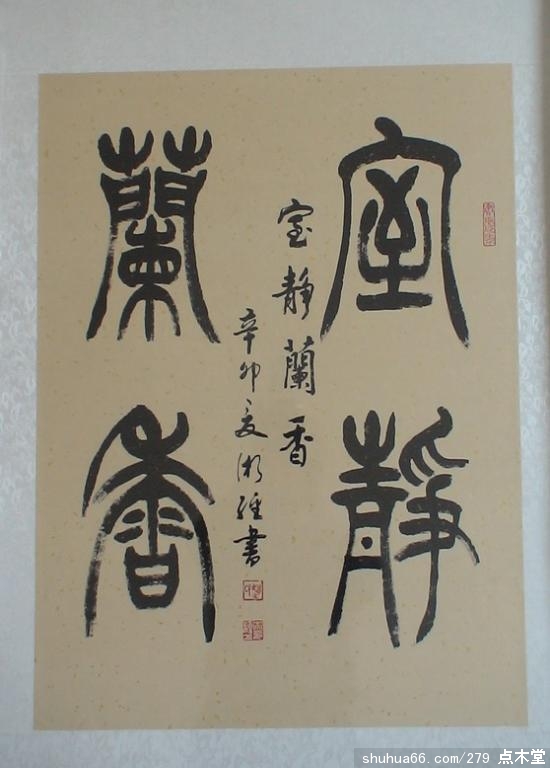 室靜
蘭香
室静蘭香
辛卯夏湘经書
shuhua66.com/279 点木堂